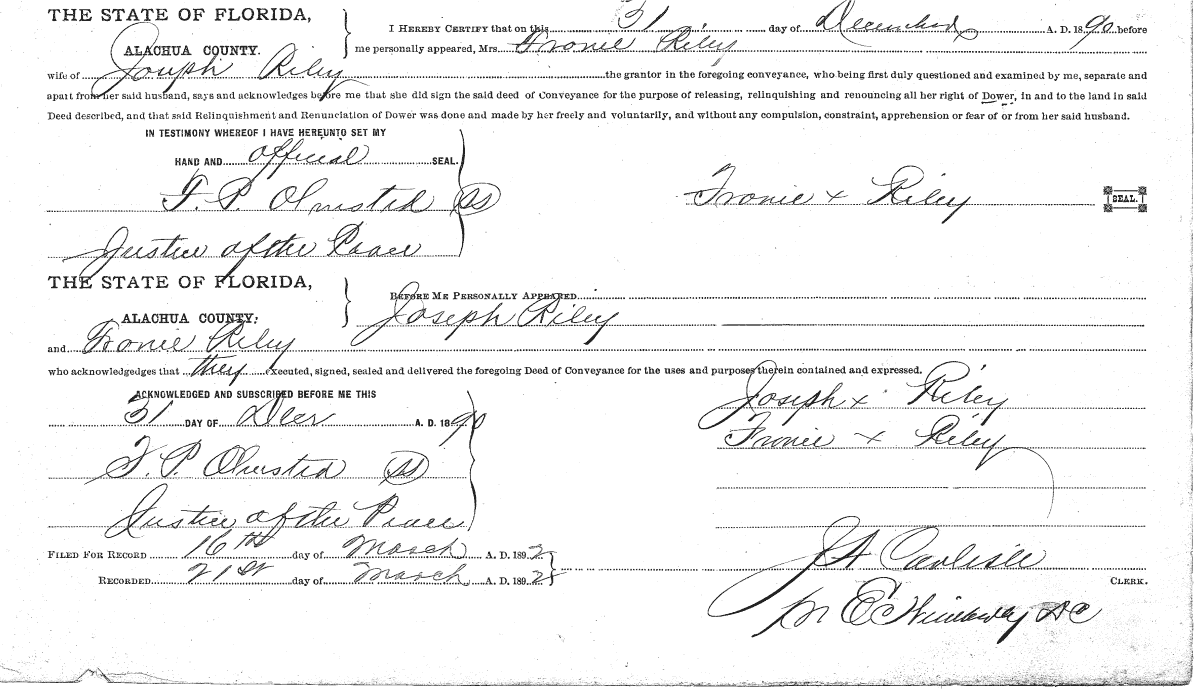 THE STATE OF FLORIDA,
I HEREBY CERTIFY that on this 31 day of December A. D. 1890 before
ALACHUA COUNTY.
me personally appeared, Mrs. Fronie Riley
wife of Joseph Riley the grantor in the foregoing conveyance, who being first duly questioned and examined by me, separate and
apart from her said husband, says and acknowledges before me that she did sign the said deed of Conveyance for the purpose of releasing, relinquishing and renouncing all her right of Dower, in and to the land in said
Deed described, and that said Relinquishment and Renunciation of Dower was done and made by her freely and voluntarily, and without any compulsion, constraint, apprehension or fear of or from her said husband.
IN TESTIMONY WHEREOF I HAVE HEREUNTO SET MY
HAND AND official SEAL.
F. P. Olmsted SS
Fronie x Riley SEAL.
Justice of the Peace
THE STATE OF FLORIDA,
BEFORE ME PERSONALLY APPEARED
ALACHUA COUNTY:
Joseph Riley
and Fronie Riley
who acknowledgedges that they executed, signed, sealed and delivered the foregoing Deed of Conveyance for the uses and purposes therein contained and expressed.
ACKNOWLEDGED AND SUBSCRIBED BEFORE ME THIS
Joseph x Riley
31 DAY OF Decr A. D. 1890
Fronie x Riley
F. P. Olmsted SS
Justice of the Peace
FILED FOR RECORD 16th day of March A. D. 1892
J A Carlisle
RECORDED 21st day of March A. D. 1892
CLERK.
DC